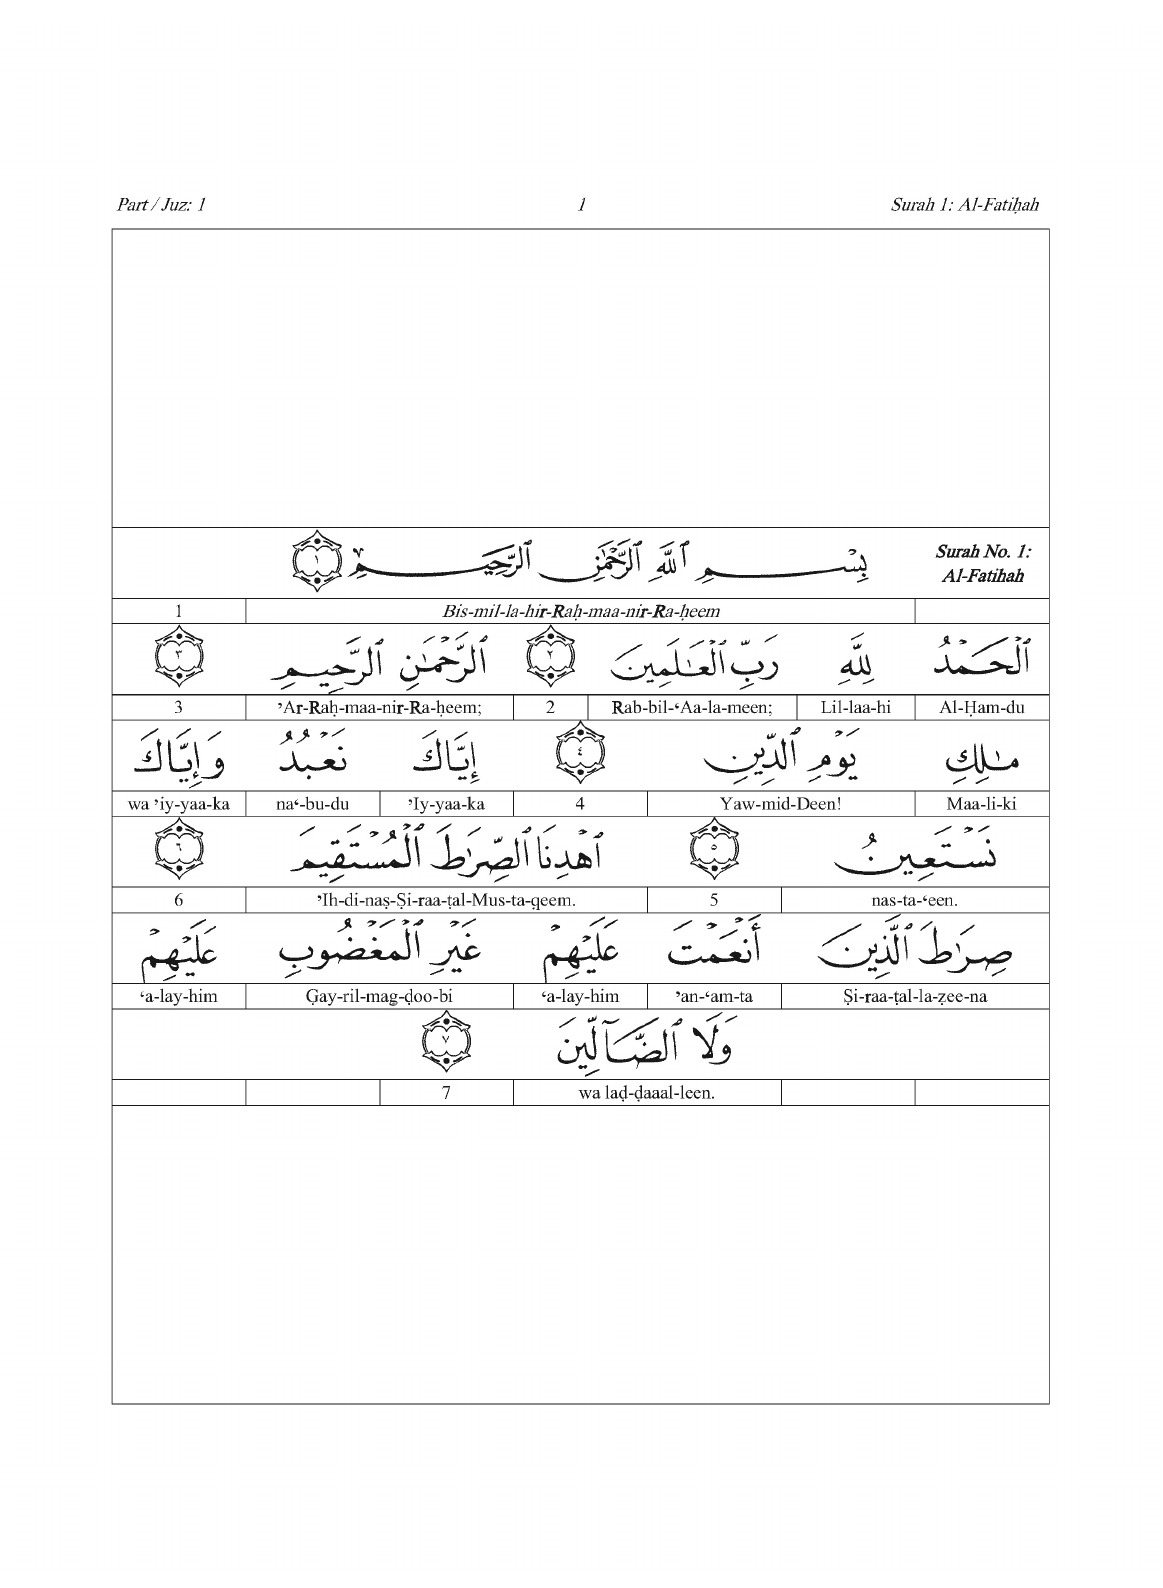 Part / Juz: 1 1 Surah 1: Al-Fatiḥah
بِسْمِ ٱللَّهِ ٱلرَّحْمَٰنِ ٱلرَّحِيمِ ١ Surah No. 1:
Al-Fatihah
1 Bis-mil-la-hir-Raḥ-maa-nir-Ra-ḥeem
ٱلْحَمْدُ لِلَّهِ رَبِّ ٱلْعَٰلَمِينَ ٢ ٱلرَّحْمَٰنِ ٱلرَّحِيمِ ٣
3 ’Ar-Raḥ-maa-nir-Ra-ḥeem; 2 Rab-bil-‘Aa-la-meen; Lil-laa-hi Al-Ḥam-du
مَٰلِكِ يَوْمِ ٱلدِّينِ ٤ إِيَّاكَ نَعْبُدُ وَإِيَّاكَ
wa ’iy-yaa-ka na‘-bu-du ’Iy-yaa-ka 4 Yaw-mid-Deen! Maa-li-ki
نَسْتَعِينُ ٥ ٱهْدِنَا ٱلصِّرَٰطَ ٱلْمُسْتَقِيمَ ٦
6 ’Ih-di-naṣ-Ṣi-raa-ṭal-Mus-ta-qeem. 5 nas-ta-‘een.
صِرَٰطَ ٱلَّذِينَ أَنْعَمْتَ عَلَيْهِمْ غَيْرِ ٱلْمَغْضُوبِ عَلَيْهِمْ
‘a-lay-him Ġay-ril-mag-ḍoo-bi ‘a-lay-him ’an-‘am-ta Ṣi-raa-ṭal-la-ẓee-na
وَلَا ٱلضَّآلِّينَ ٧
7 wa laḍ-ḍaaal-leen.